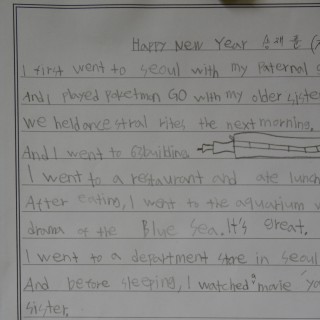 Happy New Year 송채윤
I first went to Seoul with my paternal
And I played poketmon GO with my older siste
We held ancestral rites the next morning.
And I went to 63building
I went to a restaurant and ate lunch
After eating, I went to the aquarium
drama of the Blue Sea. It's great.
I went to a department store in Seoul
And before sleeping, I watched movie
sister.